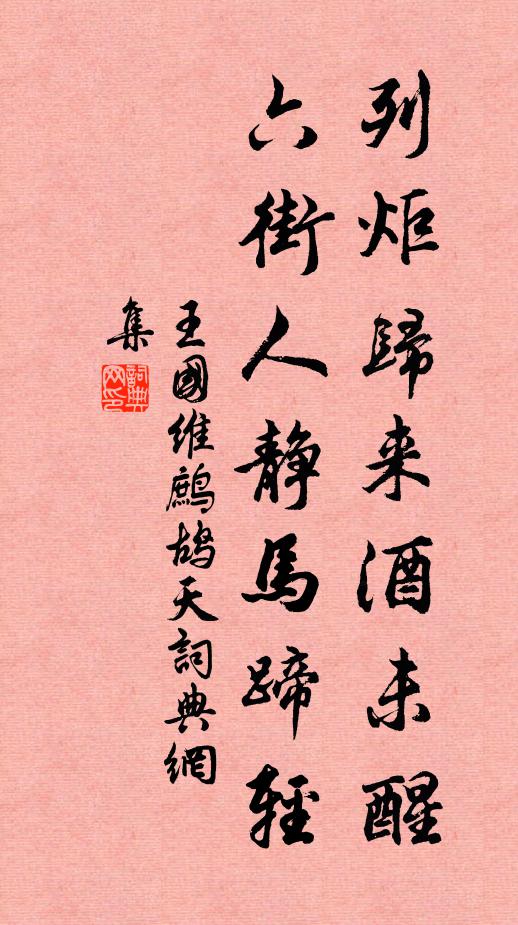 列炬歸来酒未醒
六街人静馬蹄輕
王國維鷓鴣天詞典網
集
詞典网印